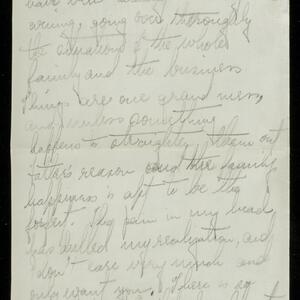 have been
wrong, going over thoroughly
the situation of the whole
family and the business
Things are one grand mess,
and unless something
happens to straighten them out
reason and the family
happiness is apt to be the
forfeit. This pain in my head
has dulled my realization, and
I don't care very much and
only want you. There is no